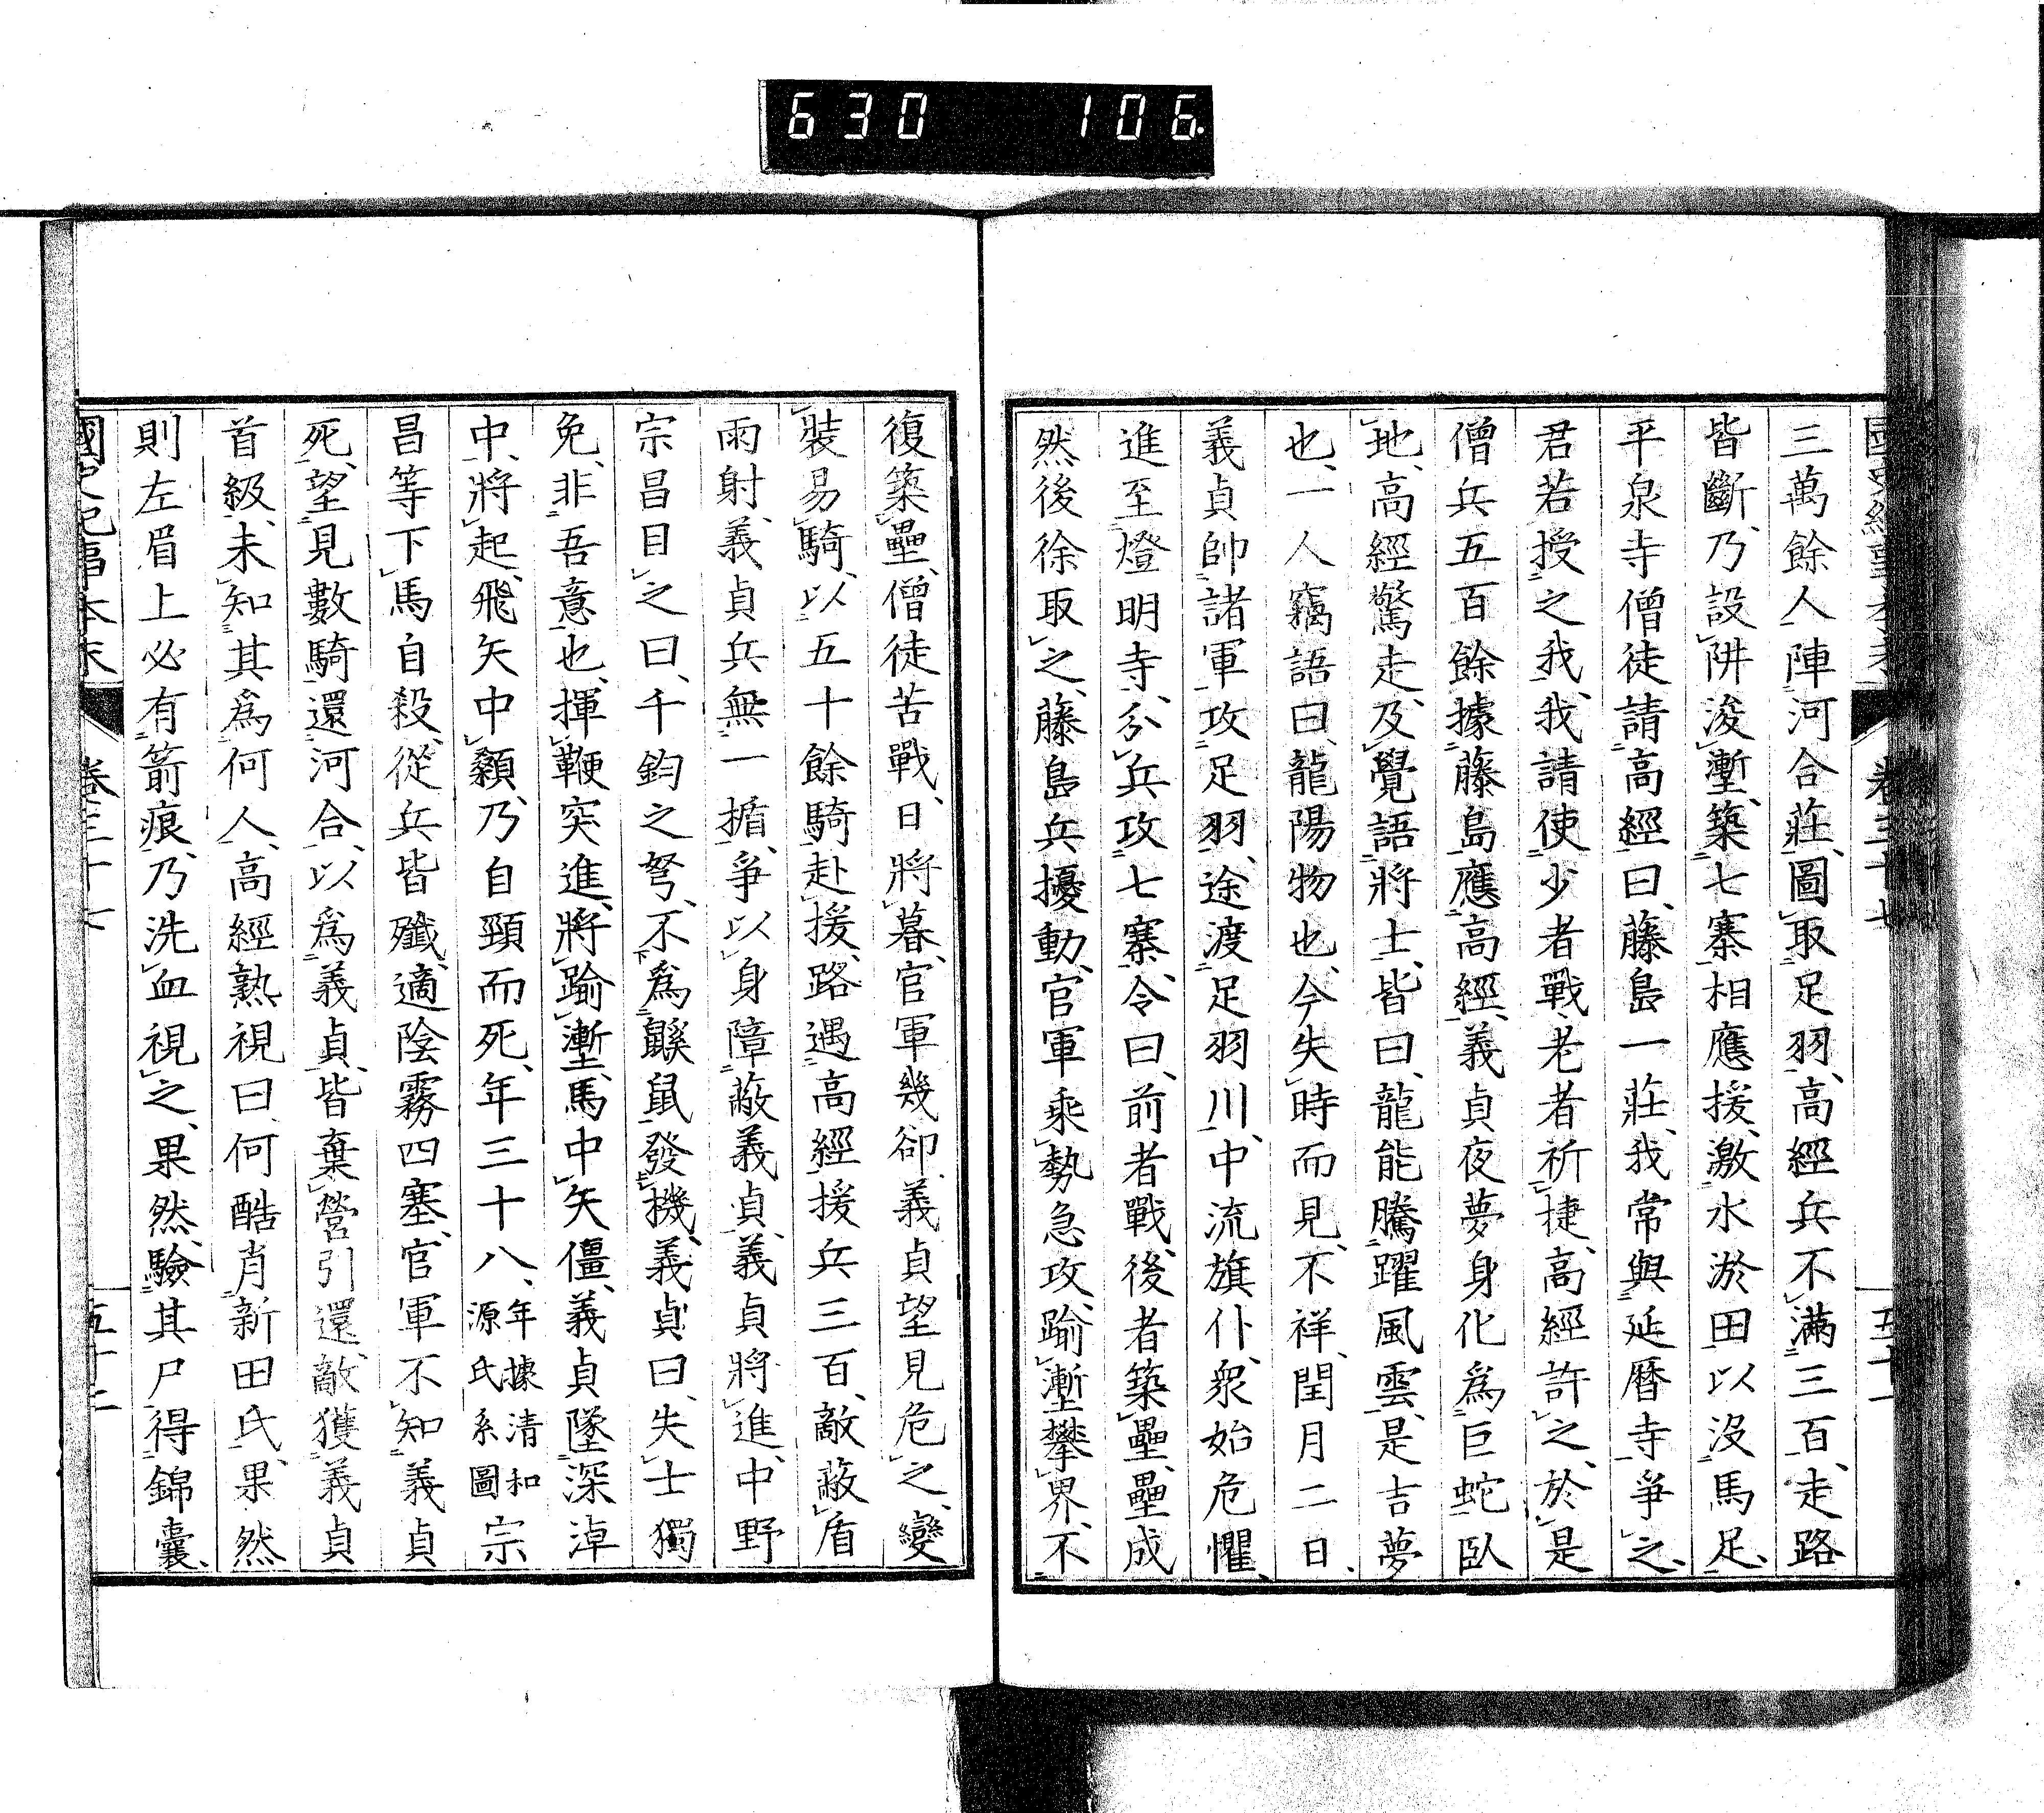 630 106
三萬餘人陣河合莊、圖取足羽、高經兵不滿三百、走路
皆斷、乃設阱浚塹、築七寨相應援、激水淤田、以沒馬足、
平泉寺僧徒請高經曰、藤島一莊、我常與延曆寺爭之、
君若授之我、我請使少者戰、老者祈捷、高經許之、於是
僧兵五百餘據藤島應高經、義貞夜夢身化爲巨蛇臥
地、高經驚走、及覺語將士、皆曰、龍能騰躍風雲、是吉夢
也、一人竊語曰、龍陽物也、今失時而見、不祥、閏月二日、
義貞帥諸軍攻足羽、途渡足羽川、中流旗仆、衆始危懼、
進至燈明寺、分兵攻七寨、令曰、前者戰、後者築壘、壘成
然後徐取之、藤島兵擾動、官軍乘勢急攻、踰塹攀界、不
復築壘、僧徒苦戰、日將暮、官軍幾卻、義貞望見危之、變
裝易騎、以五十餘騎赴援、路遇高經援兵三百、敵蔽盾
雨射、義貞兵無一揗、爭以身障蔽義貞、義貞將進、中野
宗昌目之曰、千鈞之弩、不爲鼷鼠發機、義貞曰、失士獨
免、非吾意也、揮鞭突進、將踰塹、馬中矢僵、義貞墜深淖
中、將起、飛矢中顙、乃自頸而死、年三十八、年據清和源氏系圖宗
昌等下馬自殺、從兵皆殲、適陰霧四塞、官軍不知義貞
死、望見數騎還河合、以爲義貞、皆棄營引還、敵獲義貞
首級、未知其爲何人、高經熟視曰、何酷肖新田氏、果然
則左眉上必有箭痕、乃洗血視之、果然、驗其尸得錦囊、
國史紀事本末 卷三十七 五十二